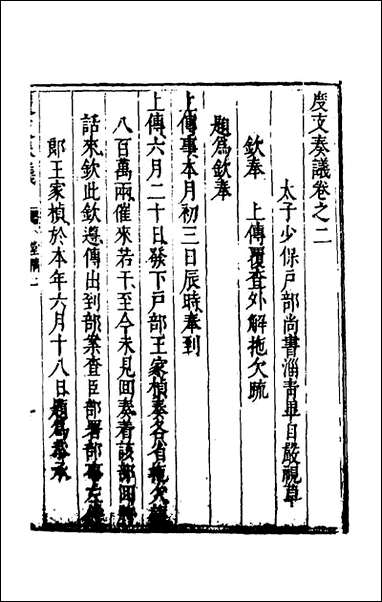 度支奏議卷之二
太子少保戶部尚書淄青畢自嚴視草
欽奉 上傳覆查外解拖欠疏
題為欽奉
上傳事本月初三日辰時奉到
上傳六月二十日發下戶部王家楨奏各省拖欠
八百萬兩催來若干至今未見回奏着該部回將
話來欽此欽遵傳出到部案查臣部署部事左侍
郎王家楨於本年六月十八日題為